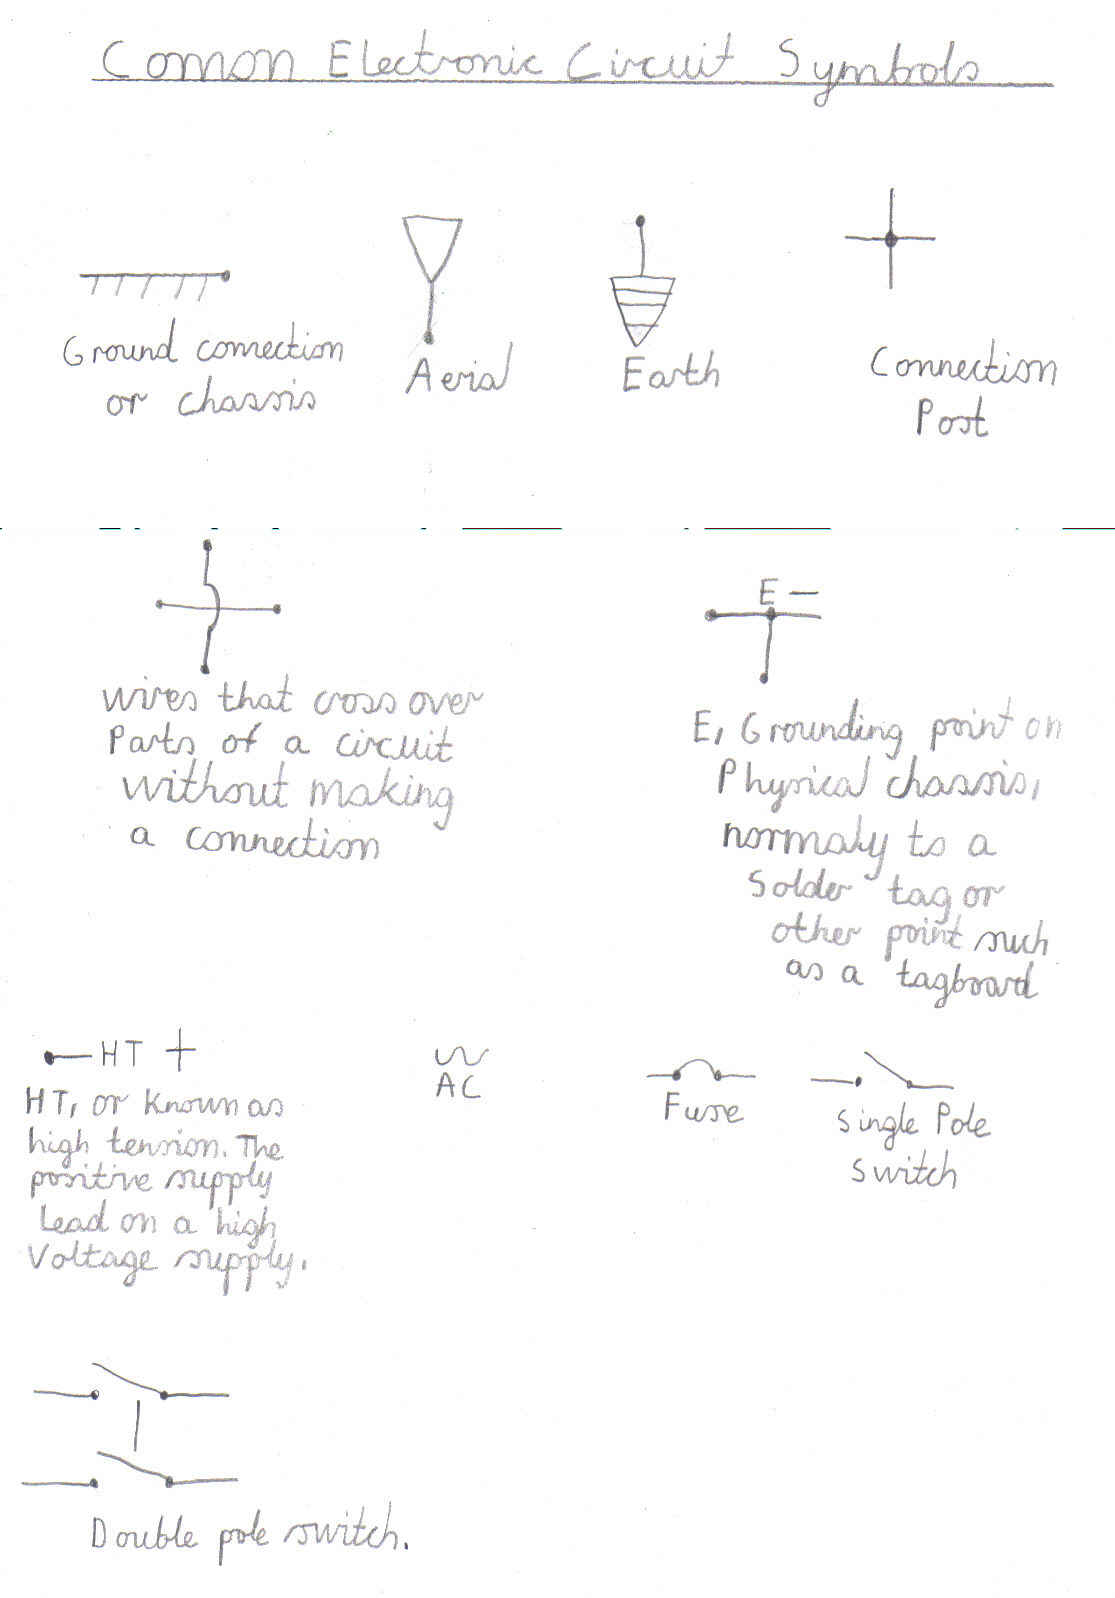 Comon Electronic Circuit Symbols
Ground connection
or chassis
Aerial
Earth
Connection
Post
wires that cross over
Parts of a circuit
without making
a connection
E -
E, Grounding point on
Physical chassis,
normaly to a
Solder tag or
other point such
as a tagboard
HT +
HT, or Known as
high tension. The
positive supply
Lead on a high
Voltage supply.
AC
Fuse
Single Pole
Switch
Double pole switch.